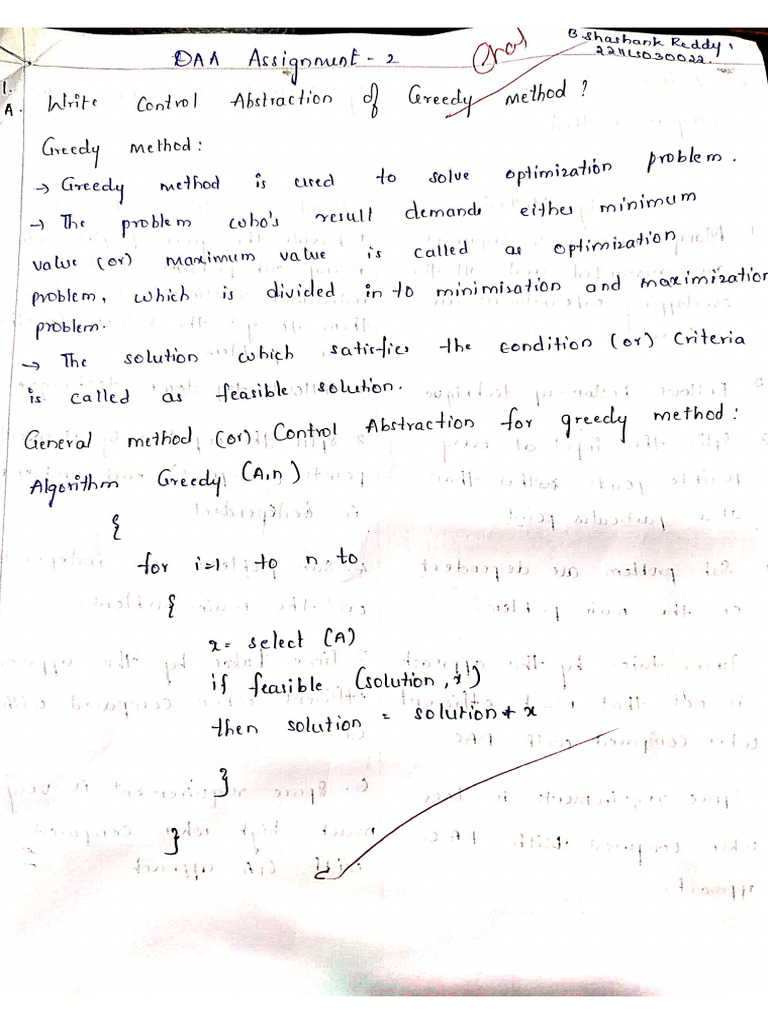 B. Shashank Reddy
DAA Assignment - 2
1.
A. Write Control Abstraction of Greedy method ?
Greedy method :
→ Greedy method is used to solve optimization problem.
→ The problem who's result demands either minimum
value (or) maximum value is called as optimization
problem, which is divided in to minimization and maximization
problem.
→ The solution which satisfies the condition (or) Criteria
is called as feasible solution.
General method (or) Control Abstraction for greedy method :
Algorithm Greedy (A,n)
{
for i=1 to n to
{
x = select (A)
if feasible (solution, x)
then solution = solution + x
}
}